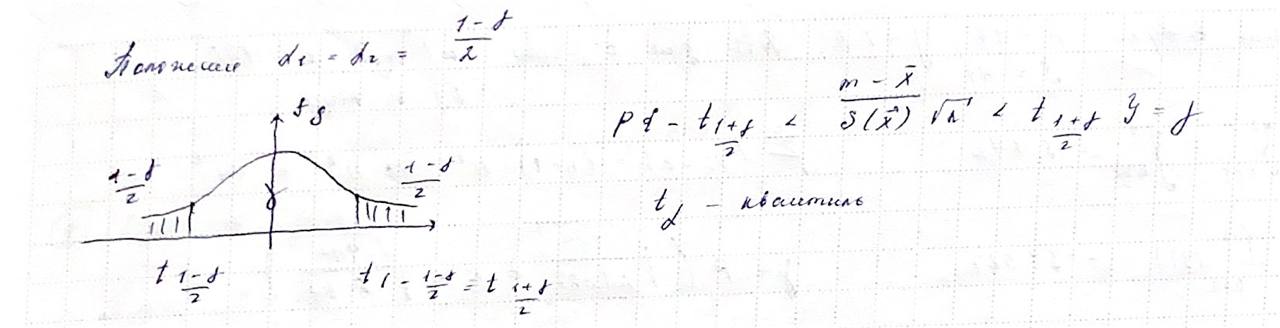 Положение α₁ = α₂ = (1-γ)/2
f_g
(1-γ)/2 γ (1-γ)/2
t_{(1-γ)/2} t_{1-(1-γ)/2} = t_{(1+γ)/2}
P{ - t_{(1+γ)/2} < (m - x̄)/S(x̄) √n < t_{(1+γ)/2} } = γ
t_α - квантиль